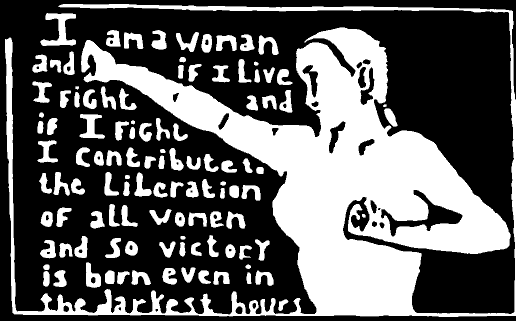 I am a woman
and if I live
I fight and
if I fight
I contribute to
the liberation
of all women
and so victory
is born even in
the darkest hours